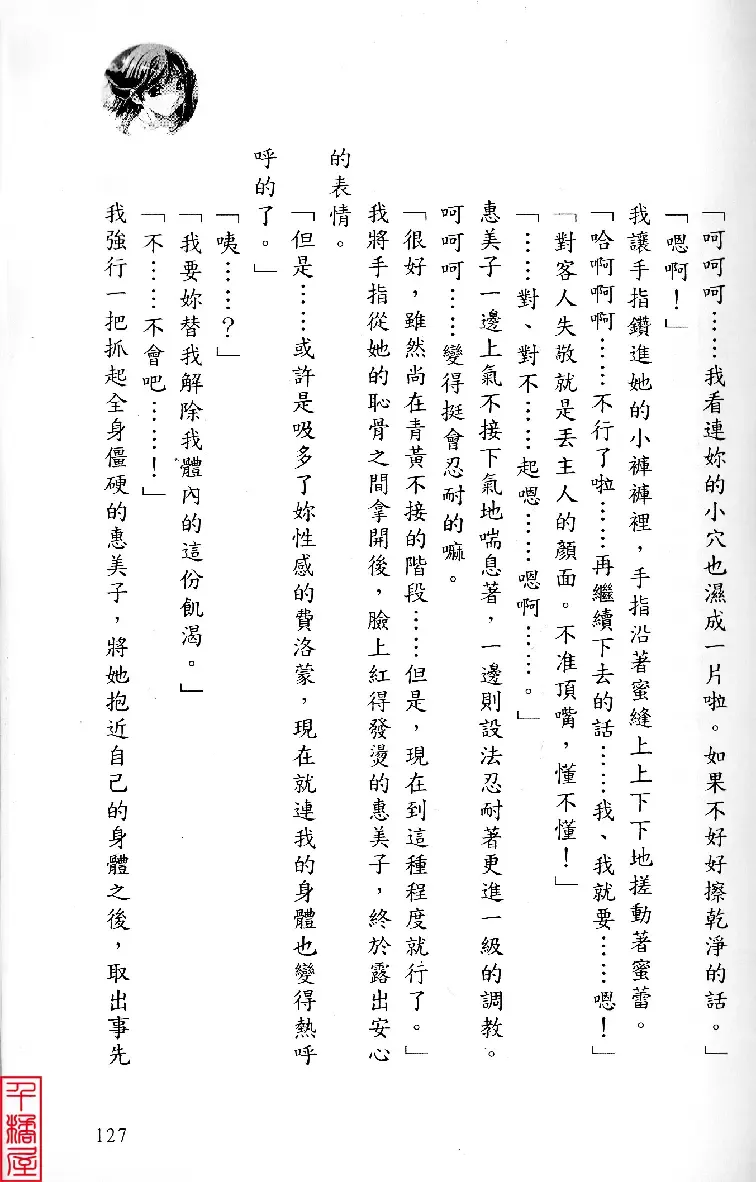 「呵呵呵……我看連妳的小穴也濕成一片啦。如果不好好擦乾淨的話。」
「嗯啊！」
我讓手指鑽進她的小褲褲裡，手指沿著蜜縫上上下下地搓動著蜜蕾。
「哈啊啊啊……不行了啦……再繼續下去的話……我、我就要……嗯！」
「對客人失敬就是丟主人的顏面。不准頂嘴，懂不懂！」
「……對、對不……起嗯……嗯啊……。」
惠美子一邊上氣不接下氣地喘息著，一邊則設法忍耐著更進一級的調教。
呵呵呵……變得挺會忍耐的嘛。
「很好，雖然尚在青黃不接的階段……但是，現在到這種程度就行了。」
我將手指從她的恥骨之間拿開後，臉上紅得發燙的惠美子，終於露出安心
的表情。
「但是……或許是吸多了妳性感的費洛蒙，現在就連我的身體也變得熱呼
呼的了。」
「咦……？」
「我要妳替我解除我體內的這份飢渴。」
「不……不會吧……！」
我強行一把抓起全身僵硬的惠美子，將她抱近自己的身體之後，取出事先
127
千橘屋